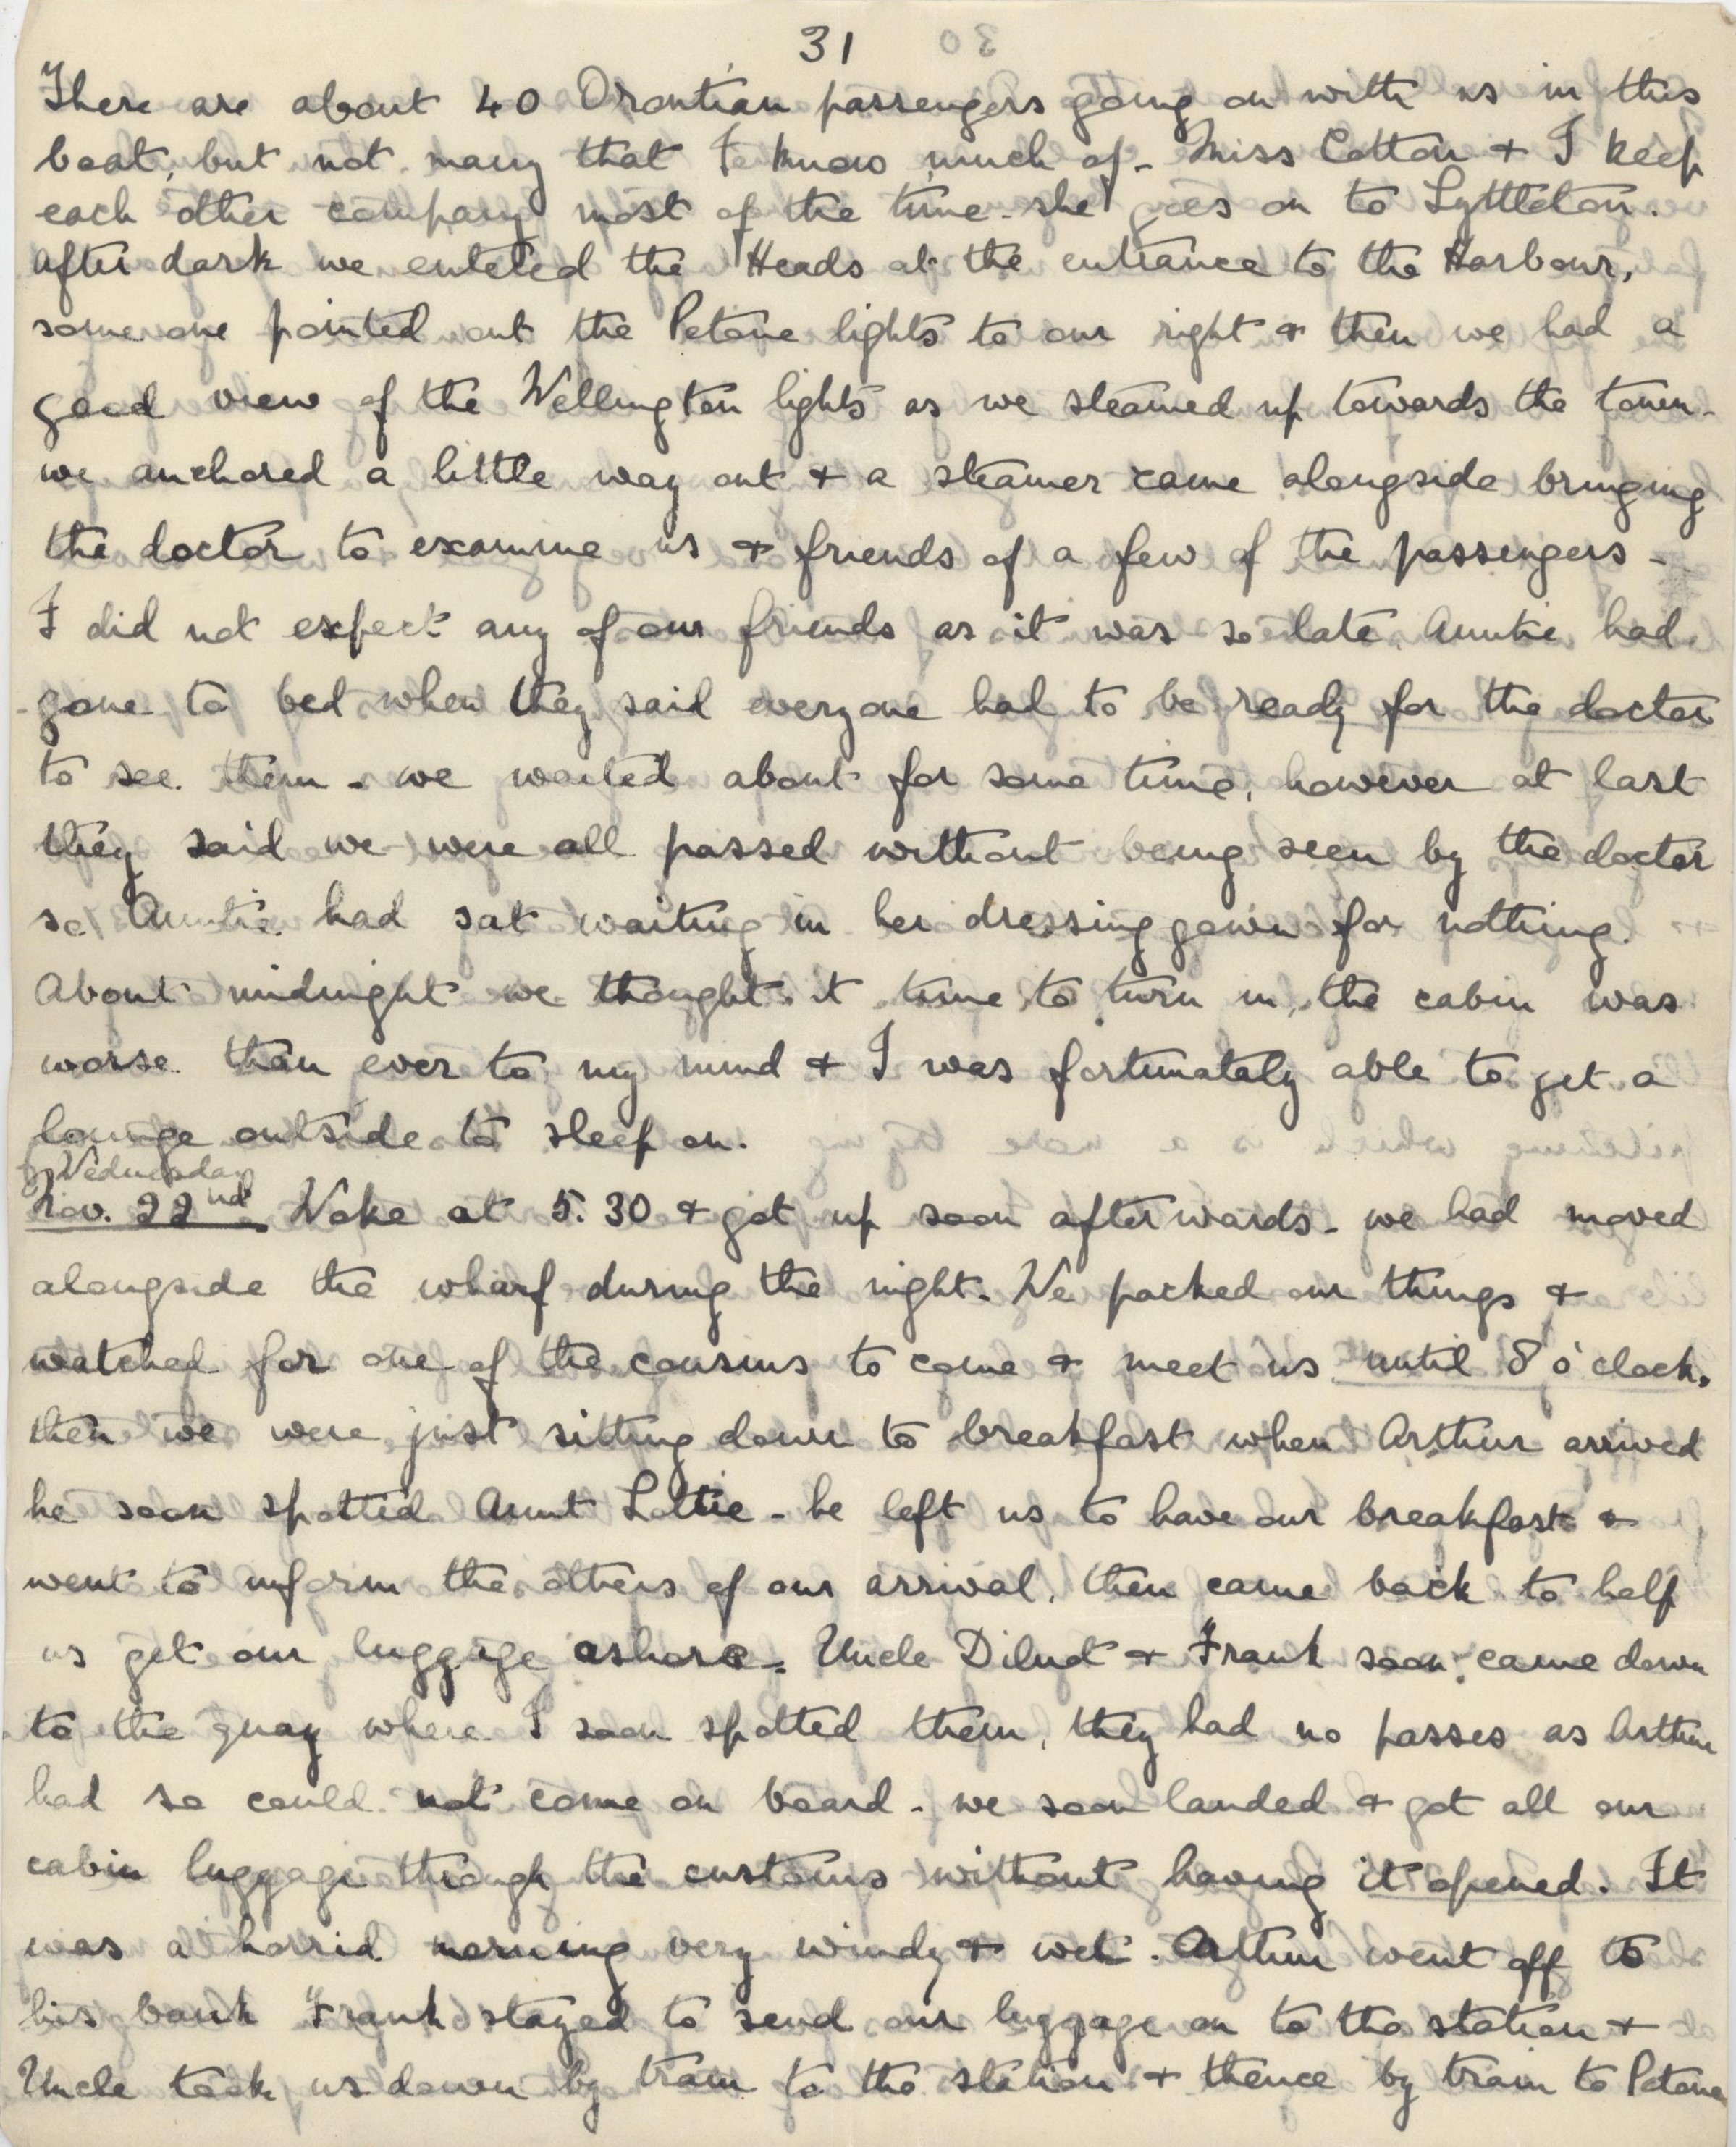 31
There are about 40 Orontian passengers going on with us in this
boat, but not many that I know much of - Miss Cotton + I keep
each other company most of the time - she goes on to Lyttleton.
After dark we entered the Heads at the entrance to the Harbour,
some one pointed out the Petone lights to our right + then we had a
good view of the Wellington lights as we steamed up towards the town -
we anchored a little way out + a steamer came alongside bringing
the doctor to examine us + friends of a few of the passengers -
I did not expect any of our friends as it was so late. Auntie had
gone to bed when they said everyone had to be ready for the doctor
to see them - we waited about for some time, however at last
they said we were all passed without being seen by the doctor
so Auntie had sat waiting in her dressing gown for nothing.
About midnight we thought it time to turn in, the cabin was
worse than ever to my mind + I was fortunately able to get a
lounge outside to sleep on.
Wednesday
Nov. 22nd Woke at 5.30 + got up soon afterwards - we had moved
alongside the wharf during the night. We packed our things +
watched for one of the cousins to come + meet us until 8 o'clock,
then we were just sitting down to breakfast when Arthur arrived
he soon spotted Aunt Lottie - he left us to have our breakfast +
went to inform the others of our arrival, then came back to help
us get our luggage ashore. Uncle Dilnot + Frank soon came down
to the quay where I soon spotted them, they had no passes as Arthur
had so could not come on board - we soon landed + got all our
cabin luggage through the customs without having it opened. It
was a horrid morning very windy + wet. Arthur went off to
his bank Frank stayed to send our luggage on to the station +
Uncle took us down by tram to the station + thence by train to Petone